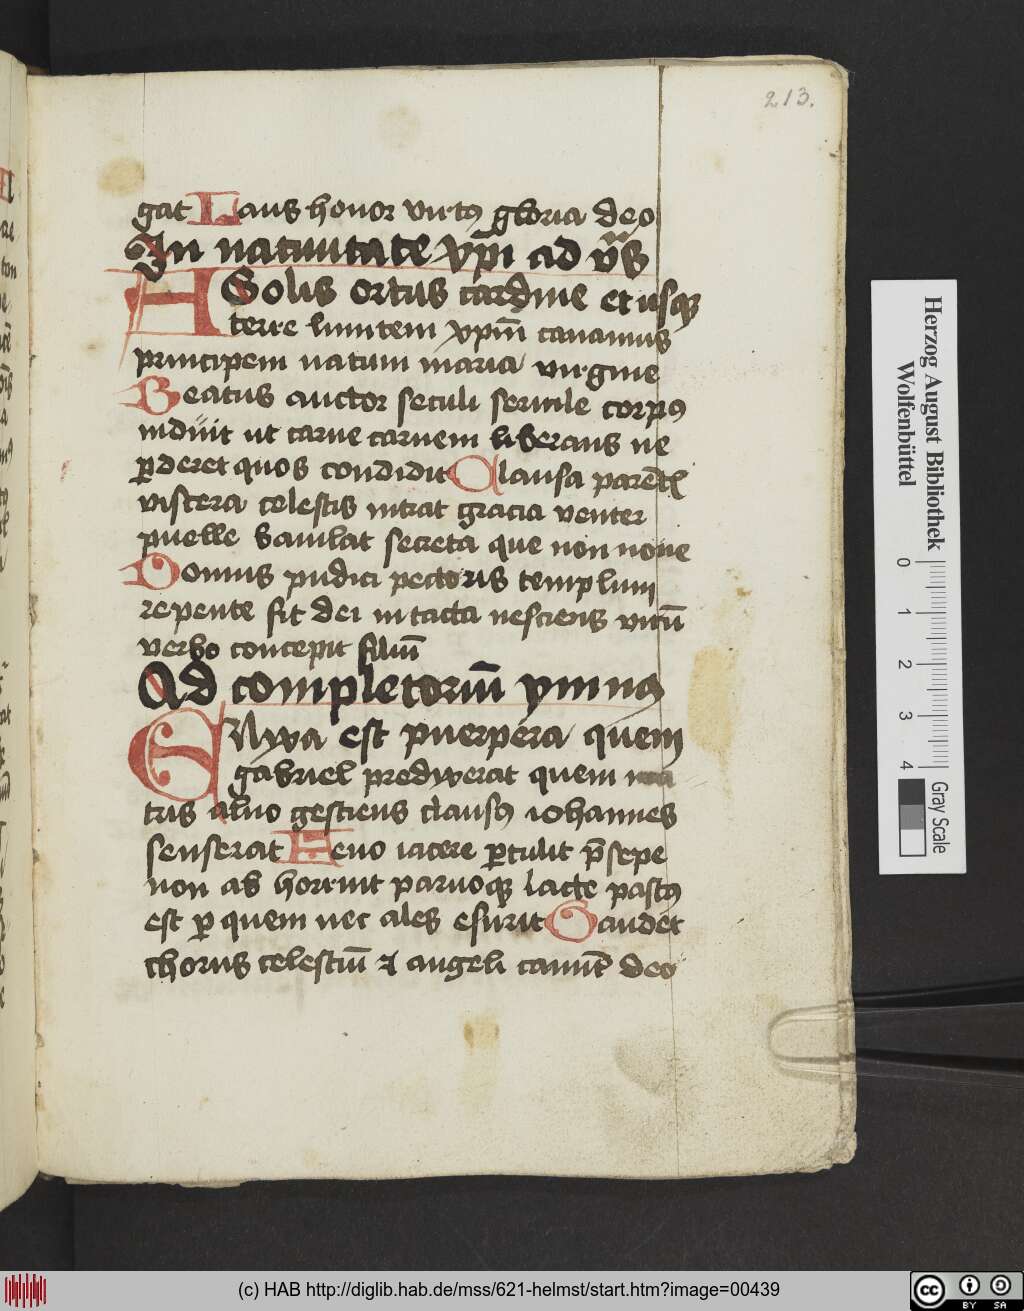 213.
gat Laus honor virtꝰ gloria deo
In natiuitate xp̄i ad vs̄
A Solis ortus cardine et usqꝫ
terre limitem xpm̄ canamus
principem natum maria virgine
Beatus auctor seculi seruile corpꝰ
induit ut carne carnem liberans ne
ꝑderet quos condidit Clausa parentꝭ
viscera celestis intrat gracia venter
puelle baiulat secreta que non noue
Domus pudici pectoris templum
repente fit dei intacta nesciens virū
verbo concepit filiū
Ad completoriū ymnus
ENixa est puerpera quem
gabriel predixerat quem ma
tris aluo gestiens clausꝰ iohannes
senserat Feno iacere ꝑtulit p̄sepe
non abhorruit paruoqꝫ lacte pastꝰ
est ꝑ quem nec ales esurit Gaudet
chorus celestiū ⁊ angeli canūt deo
Herzog August Bibliothek
Wolfenbüttel
0 1 2 3 4
Gray Scale
(c) HAB http://diglib.hab.de/mss/621-helmst/start.htm?image=00439
cc BY SA